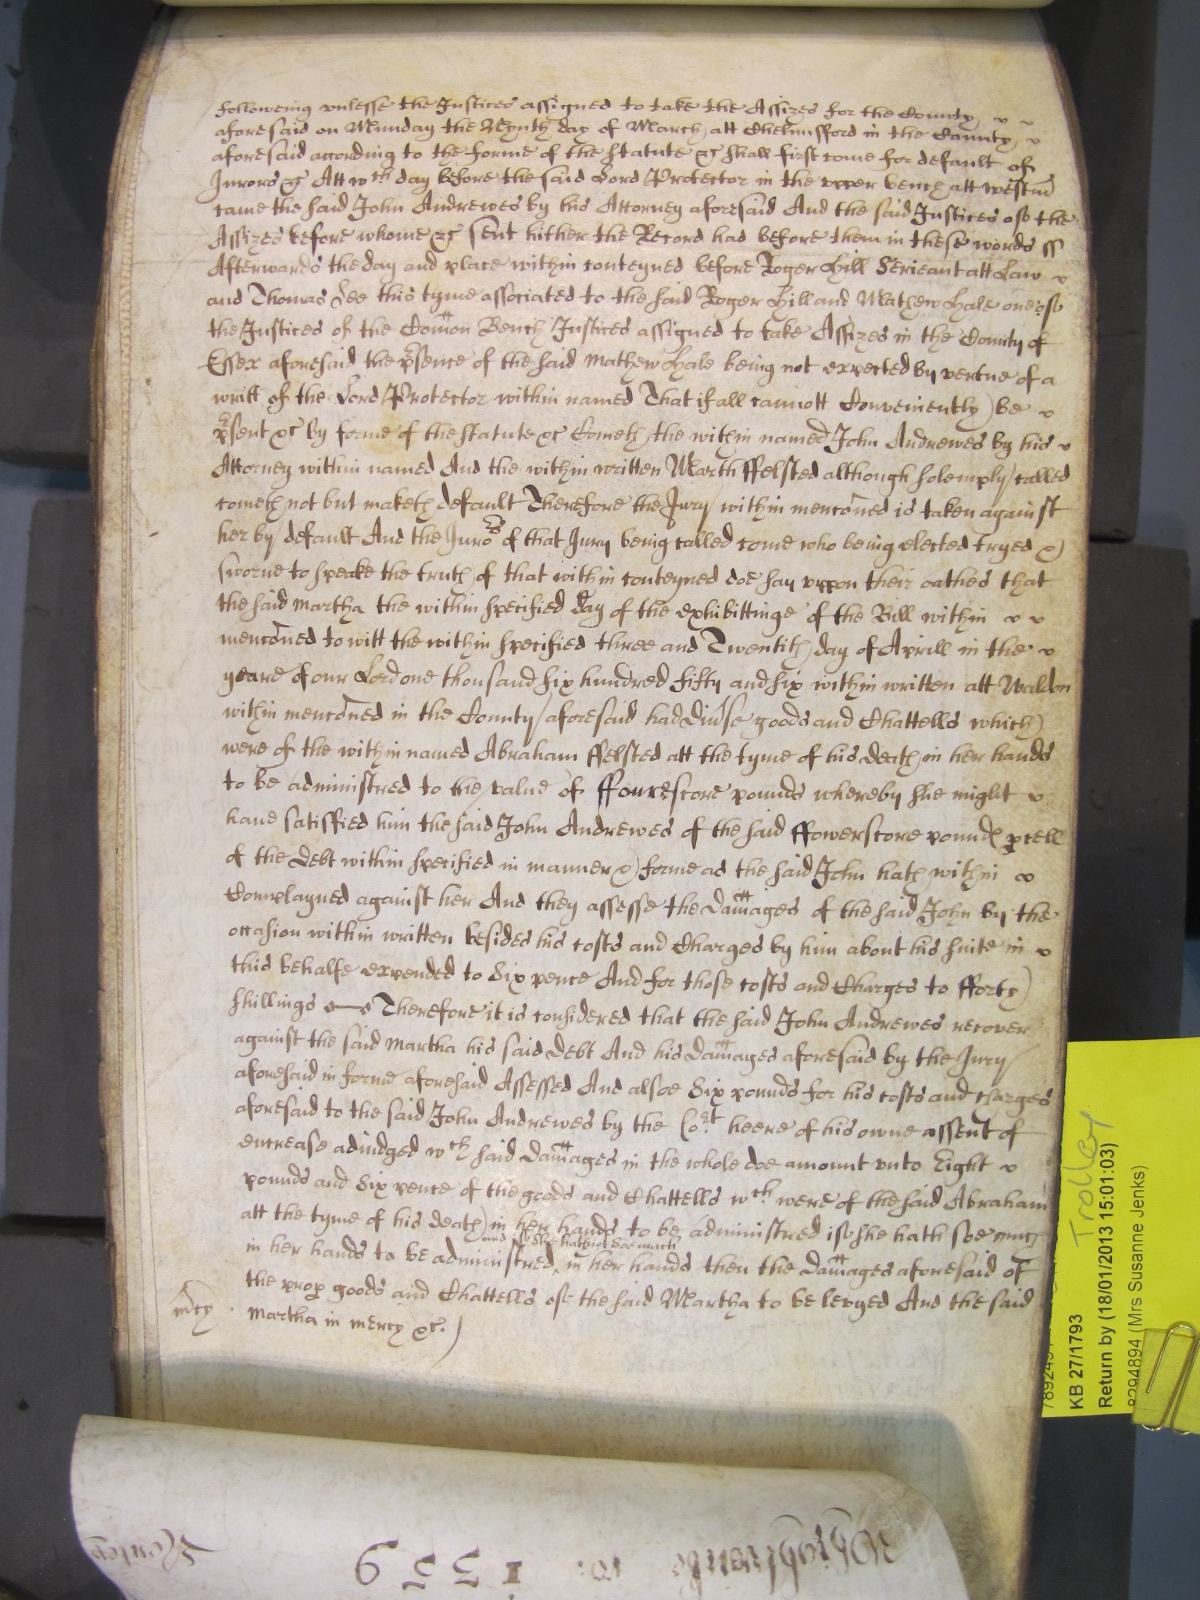 followeing unlesse the Justices assigned to take the Assizes for the County
aforesaid on Munday the Nynth day of March att Chelmsford in the County
aforesaid according to the forme of the statute &c shall first come for default of
Jurors &c Att wch day before the said Lord Protector in the upper bench att Westm
came the said John Andrewes by his Attorney aforesaid And the said Justices of the
Assizes before whome &c sent hither the Record had before them in these words ss
Afterwards the day and place within conteyned before Roger Hill Serieant att Law
and Thomas Lee this tyme associated to the said Roger Hill and Mathew Hale one of
the Justices of the Comon Bench Justices assigned to take Assizes in the County of
Essex aforesaid the psence of the said Mathew Hale being not expected by vertue of a
writt of the Lord Protector within named That if all cannott Conveniently be
psent &c by forme of the statute &c Cometh the within named John Andrewes by his
Attorney within named And the within written Marth ffelsted although solemply called
cometh not but maketh default Therefore the Jury within menconed is taken against
her by default And the Juro's of that Jury being called come who being elected tryed &
sworne to speake the truth of that within conteyned doe say uppon their oathes that
the said Martha the within specified day of the exhibittinge of the Bill within
menconed to witt the within specified three and Twentith day of Aprill in the
yeare of our Lord one thousand six hundred fifty and six within written att Waldon
within menconed in the County aforesaid had divse goods and Chattells which
were of the within named Abraham ffelsted att the tyme of his death in her hands
to be administred to the value of ffourescore pounds whereby she might
have satisfied him the said John Andrewes of the said ffowerscore pounds pcell
of the Debt within specified in manner & forme as the said John hath within
Complayned against her And they assesse the Damages of the said John by the
occasion within written besides his costs and Charges by him about his suite in
this behalfe expended to Six pence And for those costs and Charges to fforty
shillings Therefore it is considered that the said John Andrewes recover
against the said Martha his said Debt And his Damages aforesaid by the Jury
aforesaid in forme aforesaid Assessed And alsoe Six pounds for his costs and charges
aforesaid to the said John Andrewes by the Cort heere of his owne assent of
encrease adiudged wch said Damages in the whole doe amount unto Eight
pounds and Six pence of the goods and Chattells wch were of the said Abraham
att the tyme of his death in her hands to be administred if she hath soe much
in her hands to be administred and if she hath not soe much in her hands then the Damages aforesaid of
the prop goods and Chattells of the said Martha to be levyed And the said
mcy Martha in mercy &c.
KB 27/1793
Return by (18/01/2013 15:01:03)
8294894 (Mrs Susanne Jenks)
Trolley
1559